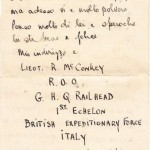 ma adesso vi è molto polvere
Penso molto di lei e spero che
lei sta bene e felice
Mio indirizzo e
LIEUT. R. McCONKEY
R. O. O.
G. H. Q. RAILHEAD
1ST ECHELON
BRITISH EXPEDITIONARY FORCE
ITALY